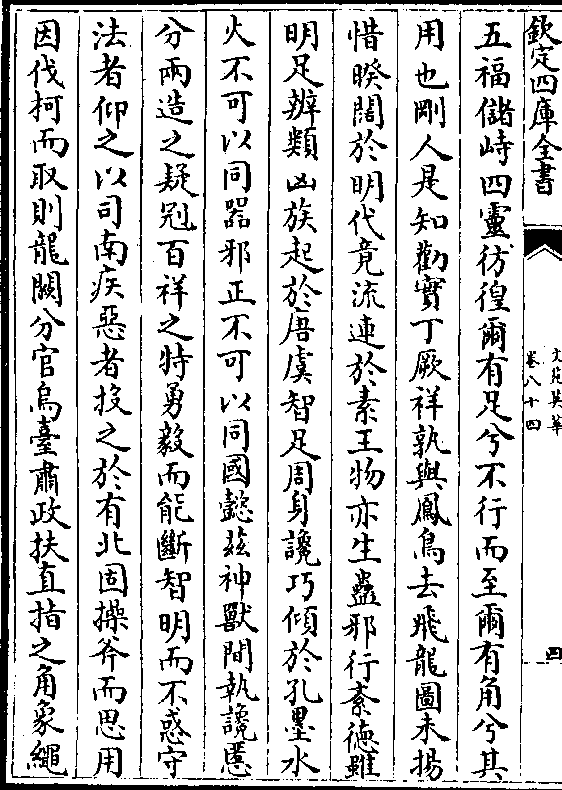 欽定四庫全書
文苑英華
卷八十四
四
五福儲峙四靈彷徨爾有足兮不行而至爾有角兮其
用也剛人是知勸實丁厥祥孰與鳳鳥去飛龍圖未揚
惜暌闊於明代竟流連於素王物亦生蠱邪行紊徳雖
明足辨類凶族起於唐虞智足周身讒巧傾於孔墨水
火不可以同器邪正不可以同國懿兹神獸間執讒慝
分兩造之疑冠百祥之特勇毅而能斷智明而不惑守
法者仰之以司南疾惡者投之於有北固操斧而思用
因伐柯而取則龍闕分官烏臺肅政扶直指之角象繩